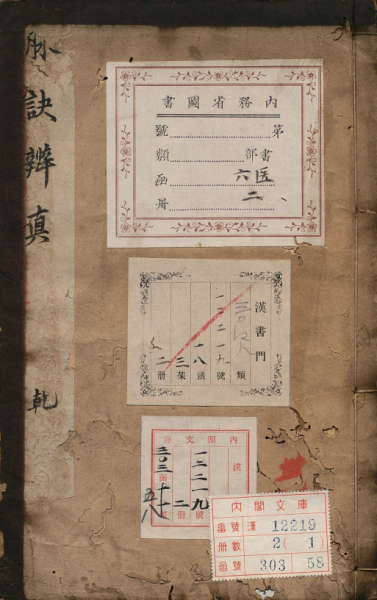 脉訣辨真 乾
內務省圖書
第 號
書部 類
医 六 函
二 册
漢書門
類
一二二一九 號
一八 函
三 架
二 册
內閣文庫
漢
一二二一九 號
二 册
三〇三 函
內閣文庫
番號 漢 12219
册數 2(1)
函號 303 58